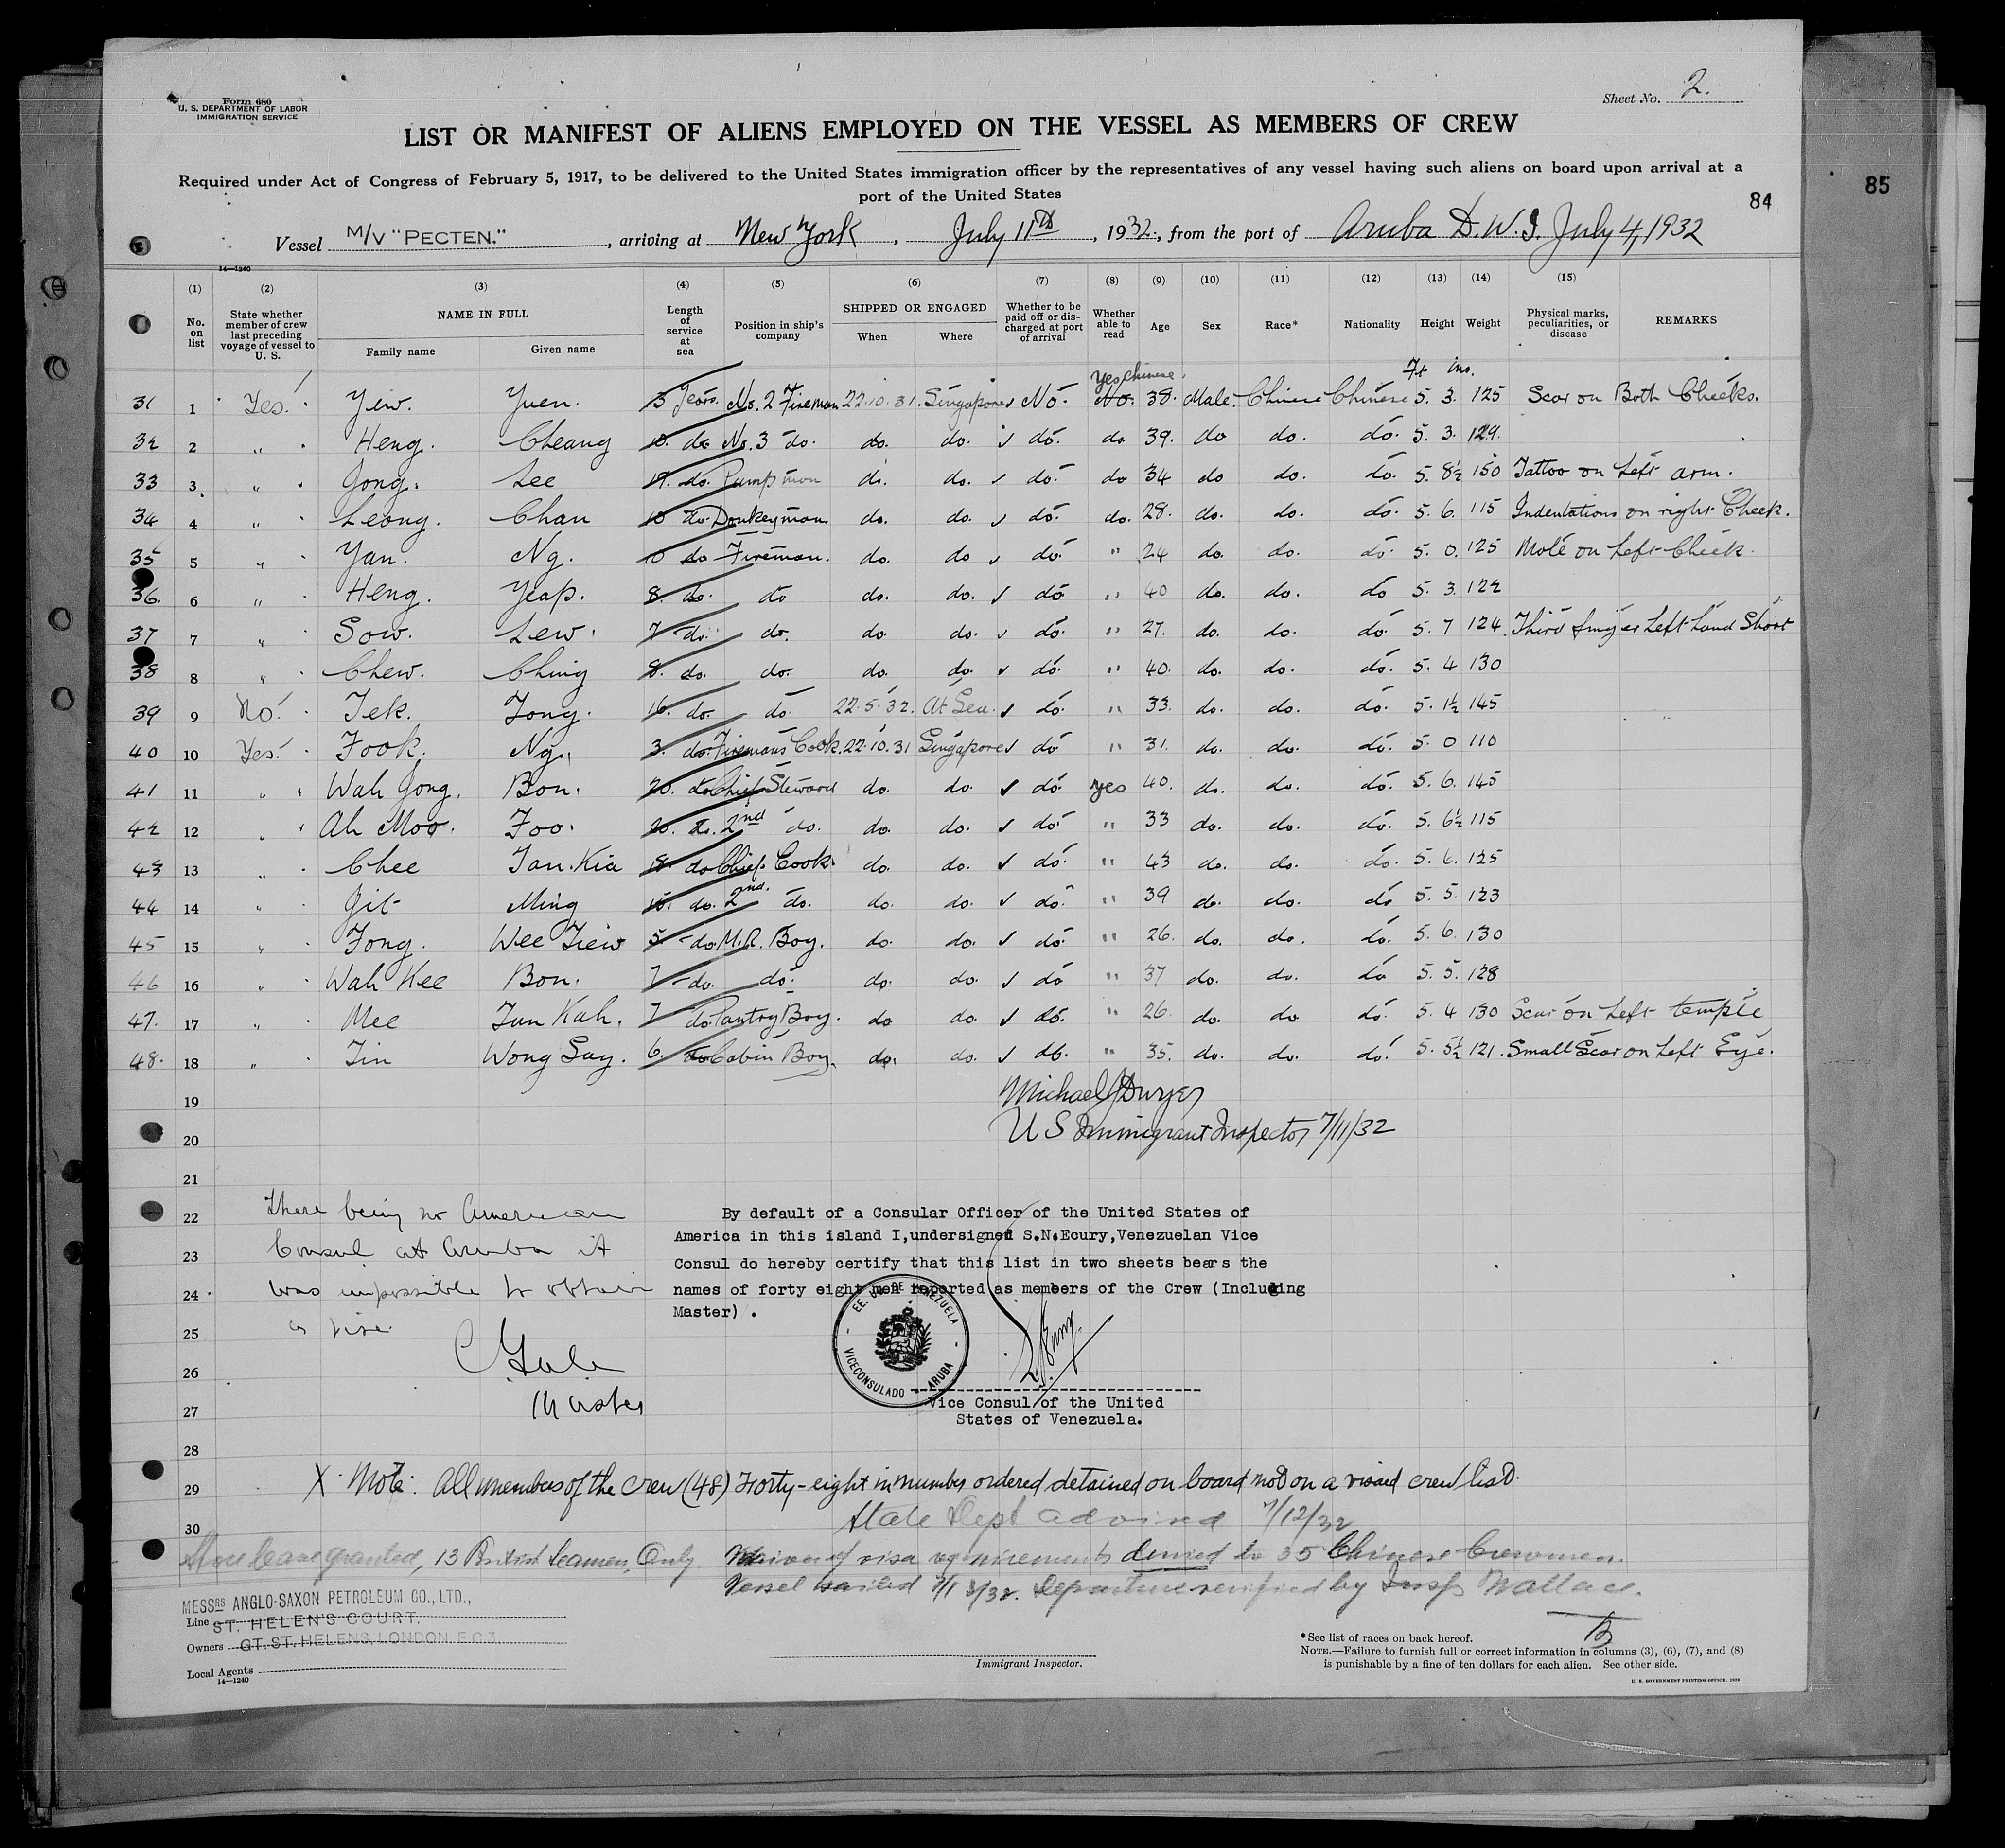 Form 680
U. S. DEPARTMENT OF LABOR
IMMIGRATION SERVICE
Sheet No. 2.
LIST OR MANIFEST OF ALIENS EMPLOYED ON THE VESSEL AS MEMBERS OF CREW
Required under Act of Congress of February 5, 1917, to be delivered to the United States immigration officer by the representatives of any vessel having such aliens on board upon arrival at a
port of the United States
84
85
Vessel M/V "PECTEN." , arriving at New York , July 11th , 1932, from the port of Aruba D.W.I. July 4, 1932
14—1240
(1) (2) (3) (4) (5) (6) (7) (8) (9) (10) (11) (12) (13) (14) (15)
No. on list
State whether member of crew last preceding voyage of vessel to U. S.
NAME IN FULL
Family name Given name
Length of service at sea
Position in ship's company
SHIPPED OR ENGAGED
When Where
Whether to be paid off or discharged at port of arrival
Whether able to read
Age Sex Race* Nationality Height Weight
Physical marks, peculiarities, or disease
REMARKS
Yes Chinese. Ft ins.
31 1 Yes. Yew. Yuen. 3 Years. No. 2 Fireman 22.10.31. Singapore No. No. 38. Male. Chinese Chinese 5. 3. 125 Scar on Both Cheeks.
32 2 " Heng. Cheang 10. do No. 3 do. do. do. do. do 39. do do. do. 5. 3. 129.
33 3 " Gong. Lee 19. do. Pumpman do. do. do. do 34 do do. do. 5. 8½ 150 Tattoo on Left arm.
34 4 " Leong. Chan 10 do. Donkeyman do. do. do. do. 28. do. do. do. 5. 6. 115 Indentations on right Cheek.
35 5 " Yan. Ng. 10 do Fireman. do. do do " 24 do. do. do. 5. 0. 125 Mole on Left Cheek.
36. 6 " Heng. Yeap. 8. do. do do. do. do " 40 do. do. do 5. 3. 122
37 7 " Sow. Lew. 7 do. do. do do. do. " 27. do. do. do. 5. 7 124. Third finger Left hand Short
38 8 " Chew. Ching 8. do. do. do. do. do. " 40. do. do. do. 5. 4 130
39 9 No. Tek. Tong. 16. do. do 22.5.32. At Sea. do. " 33. do. do. do. 5. 1½ 145
40 10 Yes. Fook. Ng. 3. do. Firemans Cook. 22.10.31 Singapore do " 31. do. do. do. 5. 0 110
41 11 " Wah Gong. Bon. 20. do Chief Steward do. do. do. yes 40. do. do. do. 5. 6. 145
42 12 " Ah Moo. Foo. 20. do. 2nd do. do. do. do. " 33 do. do. do. 5. 6½ 115
43 13 " Chee Tan Kia 18. do Chief Cook. do. do. do. " 43 do. do. do. 5. 6. 125
44 14 " Git Ming 15. do. 2nd. do. do. do. do. " 39 do. do. do 5. 5. 123
45 15 " Fong. Wee Tiew 5. do. M.R. Boy. do. do. do. " 26. do. do. do. 5. 6. 130
46 16 " Wah Kee Bon. 7 do. do. do. do. do " 37 do. do. do 5. 5. 128
47. 17 " Mee Tun Kah. 7 do. Pantry Boy. do do. do. " 26. do. do do. 5. 4 130 Scar on Left temple
48. 18 " Tin Wong Say. 6. do Cabin Boy. do. do. do. " 35. do. do. do. 5. 5½ 121. Small Scar on Left Eye.
19 Michael J Dwyer
20 US Immigrant Inspector 7/11/32
21
22 There being no American
23 Consul at Aruba it
24 was impossible to obtain
25 a vise.
26 C Gale
27 Master
28
By default of a Consular Officer of the United States of
America in this island I,undersigned S.N.Ecury,Venezuelan Vice
Consul do hereby certify that this list in two sheets bears the
names of forty eight men reported as members of the Crew (Including
Master) .
EE. UU. DE VENEZUELA
VICECONSULADO - ARUBA
Vice Consul of the United
States of Venezuela.
29 X. Note: All members of the crew (48) Forty-eight in number ordered detained on board not on a visaed crew list.
30 State Dept advised 7/12/32
Shore leave granted, 13 British Seamen, Only Waiver of visa requirements denied to 35 Chinese Crewmen.
Vessel sailed 7/13/32. Departure verified by Insp Wallace.
MESSRS ANGLO-SAXON PETROLEUM CO., LTD.,
Line ST. HELEN'S COURT.
Owners GT. ST. HELENS, LONDON. E.C.3.
Local Agents
14—1240
Immigrant Inspector.
*See list of races on back hereof.
NOTE.—Failure to furnish full or correct information in columns (3), (6), (7), and (8)
is punishable by a fine of ten dollars for each alien. See other side.